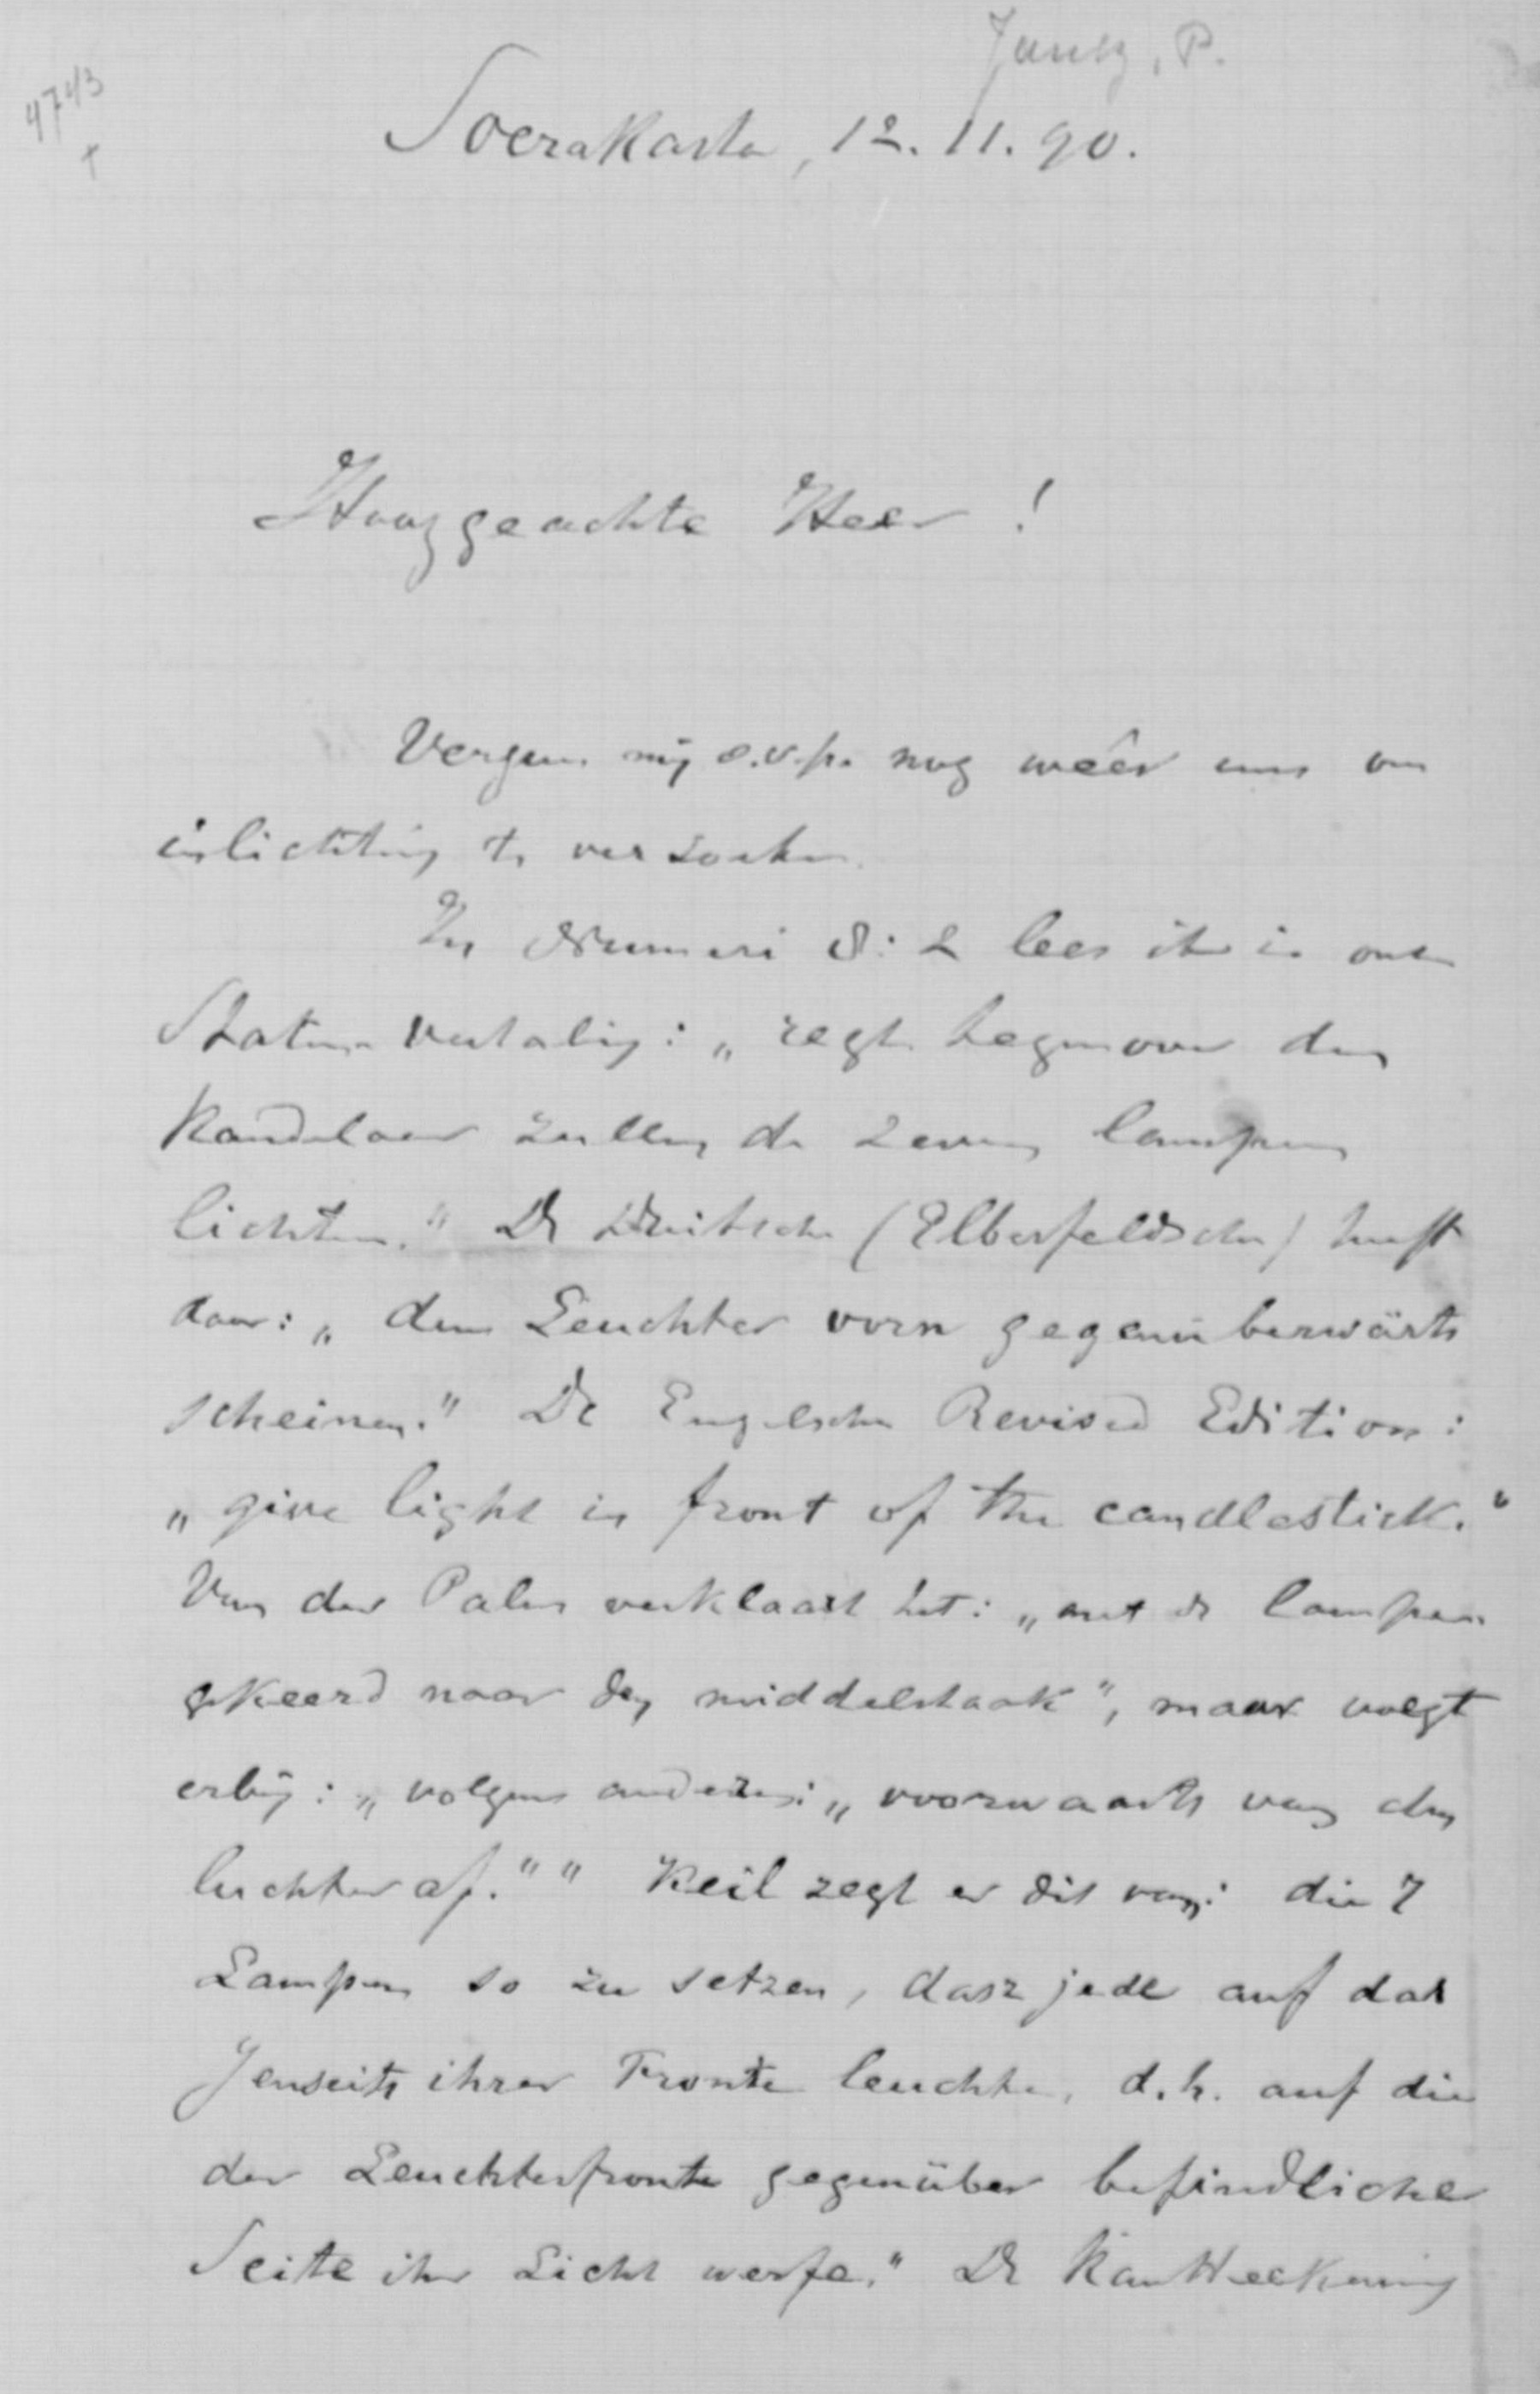 Jansz, P.
4743
Soerakarta, 12.11.90.
Hooggeachte Heer !
Vergun mij s.v.p. nog weêr eens om
inlichting te verzoeken.
In Numeri 8:2 lees ik in onze
Staten vertaling: „regt tegenover den
Kandelaar zullen de zeven lampen
lichten." De Duitsche (Elberfeldsche) heeft
daar: „dem Leuchter vorn gegenüberwärts
scheinen." De Engelsche Revised Edition:
„give light in front of the candlestick."
Van der Palm verklaart het: „met de lampen
gekeerd naar den middelstaak", maar voegt
erbij: „volgens anderen: „voorwaarts van den
luchter af."" Keil zegt er dit van: die 7
Lampen so zu setzen, dasz jede auf das
Jenseits ihrer Fronte leuchte, d.h. auf die
der Leuchterfronte gegenüber befindliche
Seite ihr Licht werfe." De Kantteekening